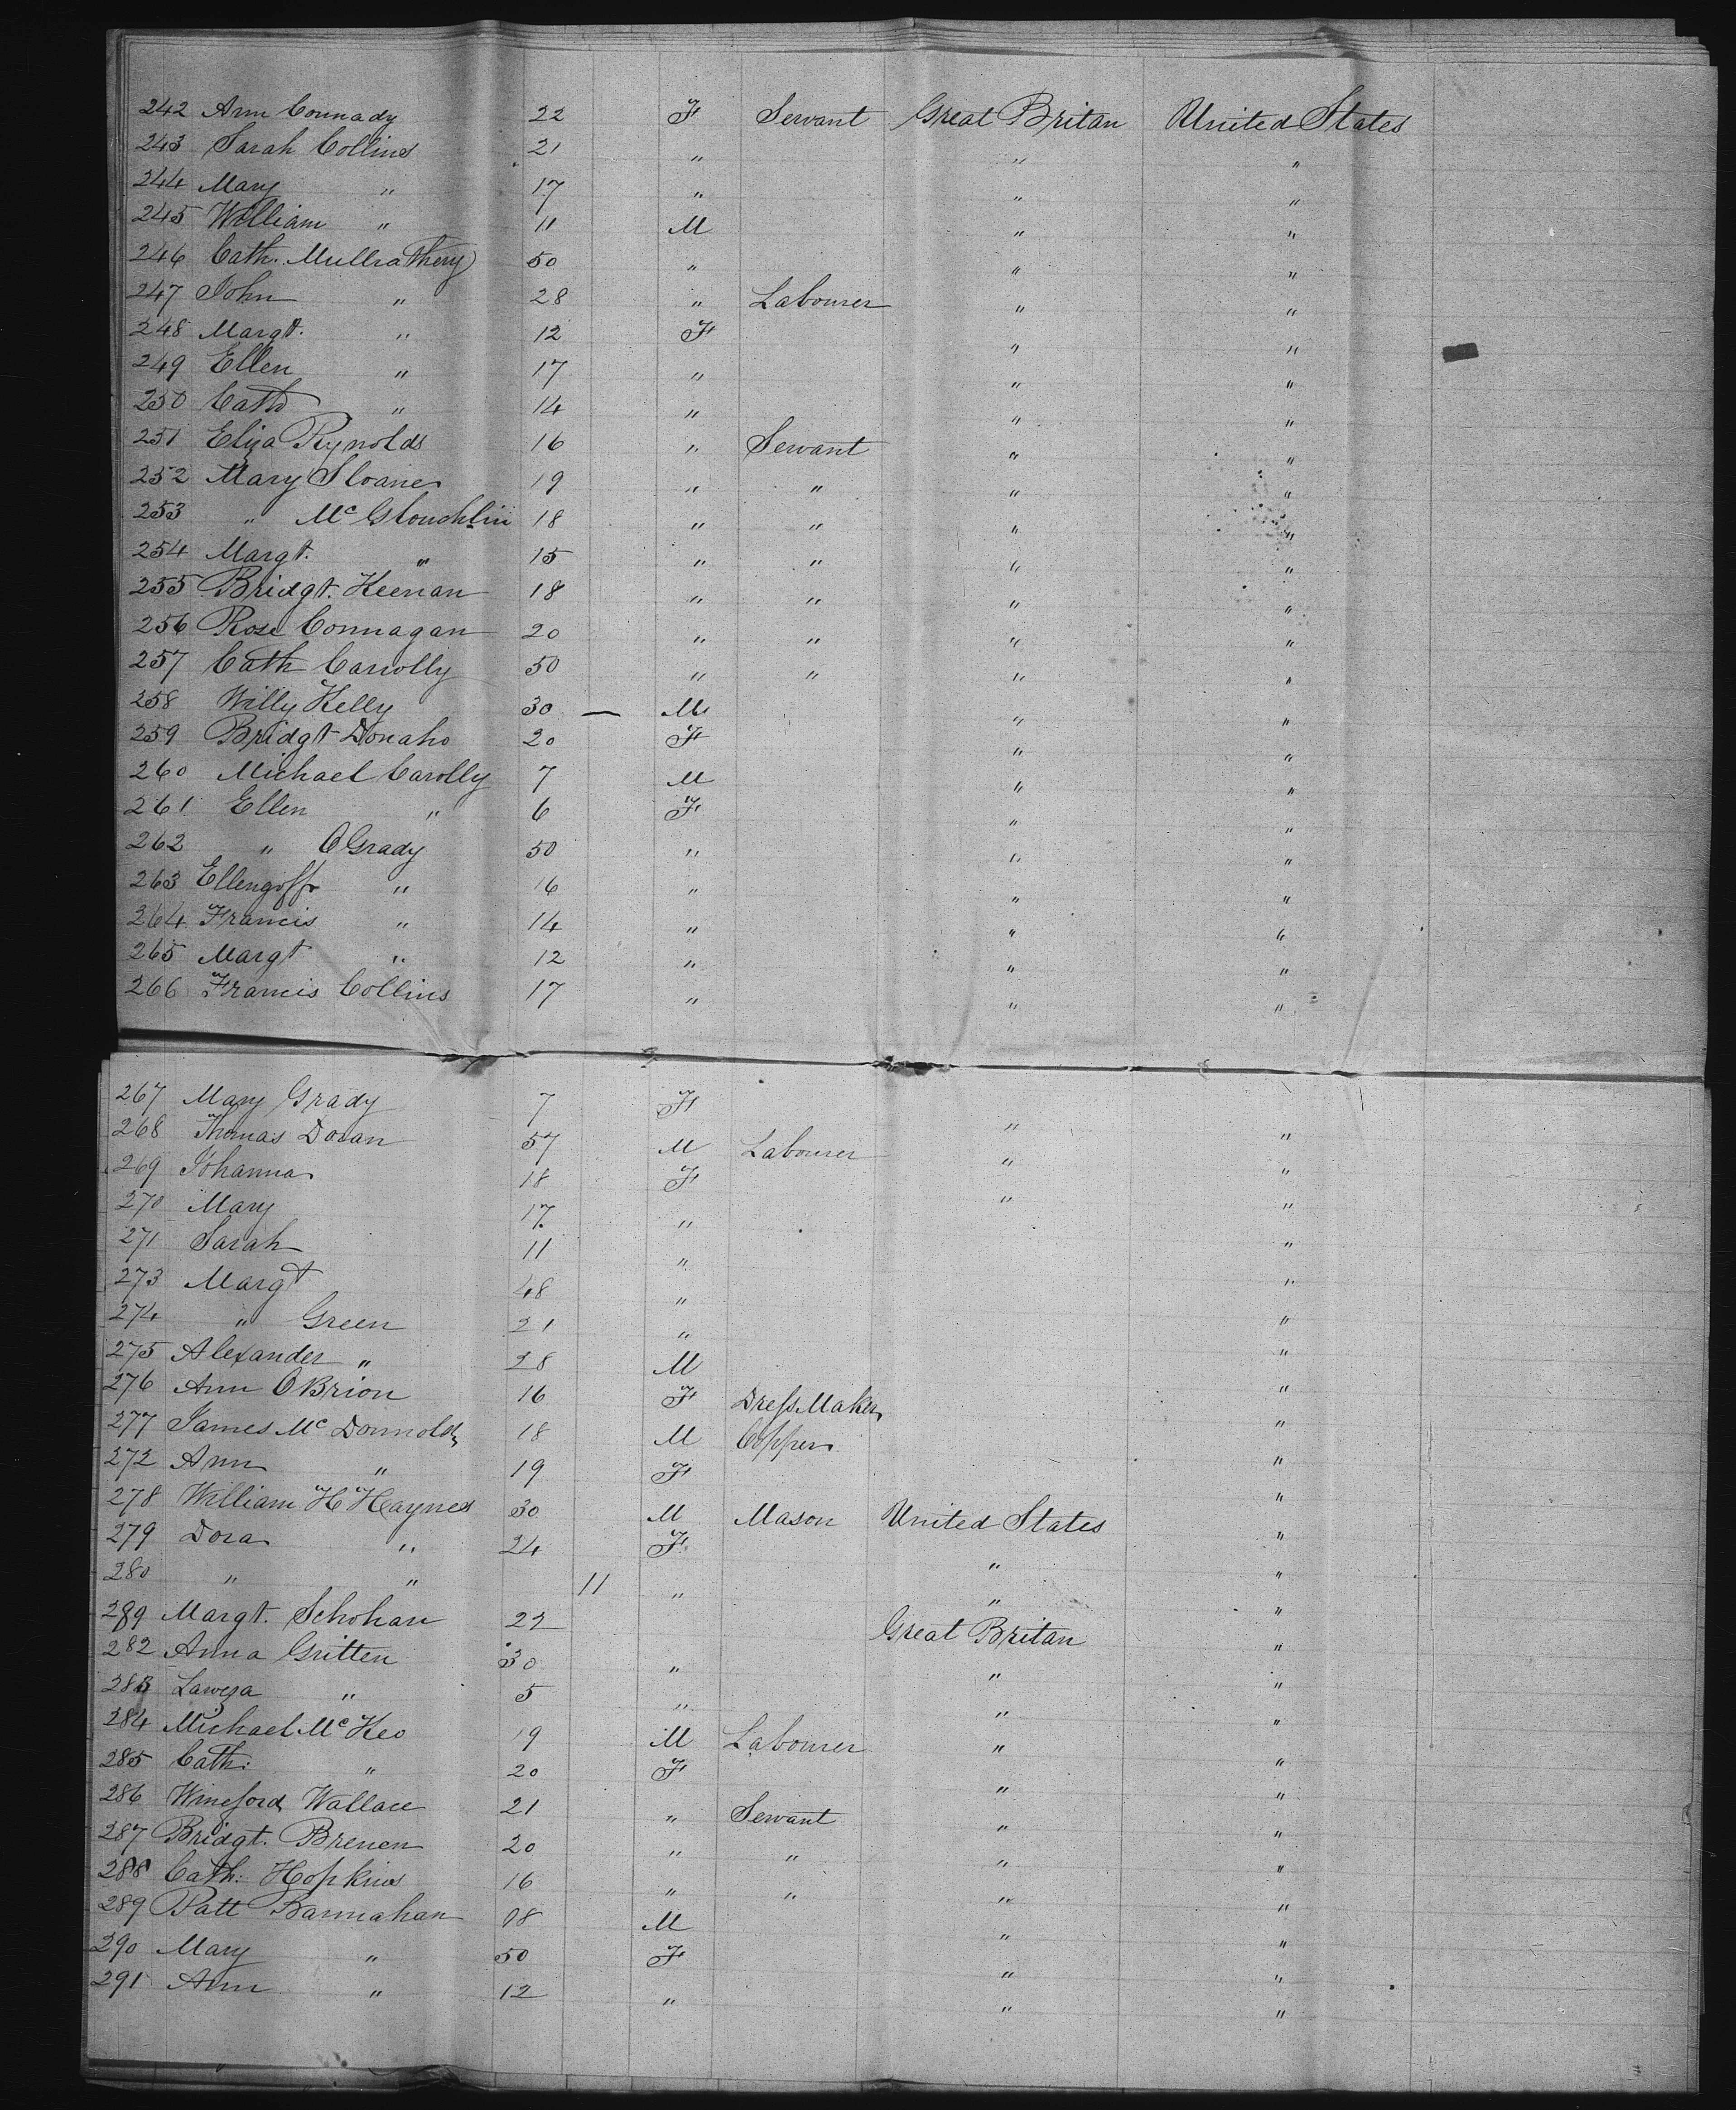 242 Ann Connady 22 F Servant Great Britan United States
243 Sarah Collins 21 " " "
244 Mary " 17 " " "
245 William " 11 M " "
246 Cath. Mullrathery 50 " " "
247 John " 28 " Labourer " "
248 Margt. " 12 F " "
249 Ellen " 17 " " "
250 Cath " 14 " " "
251 Eliza Rynolds 16 " Servant " "
252 Mary Sloane 19 " " " "
253 " Mc Gloughlin 18 " " " "
254 Margt. " 15 " " " "
255 Bridgt. Keenan 18 " " " "
256 Rose Connagan 20 " " " "
257 Cath Carrolly 50 " " " "
258 Willy Kelly 30 — M " "
259 Bridgt Donaho 20 F " "
260 Michael Carolly 7 M " "
261 Ellen " 6 F " "
262 " OGrady 50 " " "
263 " 16 " " "
264 Francis " 14 " " "
265 Margt " 12 " " "
266 Francis Collins 17 " " "
267 Mary Grady 7 F " "
268 Thomas Doran 57 M Labourer " "
269 Johanna 18 F " "
270 Mary 17 " "
271 Sarah 11 " "
273 Margt 48 " "
274 " Green 21 " "
275 Alexander " 28 M "
276 Ann OBrion 16 F Dress Maker "
277 James Mc Donnold 18 M Copper "
272 Ann " 19 F "
278 William H Haynes 30 M Mason United States "
279 Dora " 24 F " "
280 " " 11 " " "
289 Margt. Schohan 22 Great Britan "
282 Anna Gritten 30 " " "
283 " 5 " " "
284 Michael Mc Keo 19 M Labourer " "
285 Cath: " 20 F " "
286 Wineford Wallace 21 " Servant " "
287 Bridgt. Brenen 20 " " " "
288 Cath: Hopkins 16 " " " "
289 Patt Bannahan 08 M " "
290 Mary " 50 F " "
291 Ann " 12 " " "